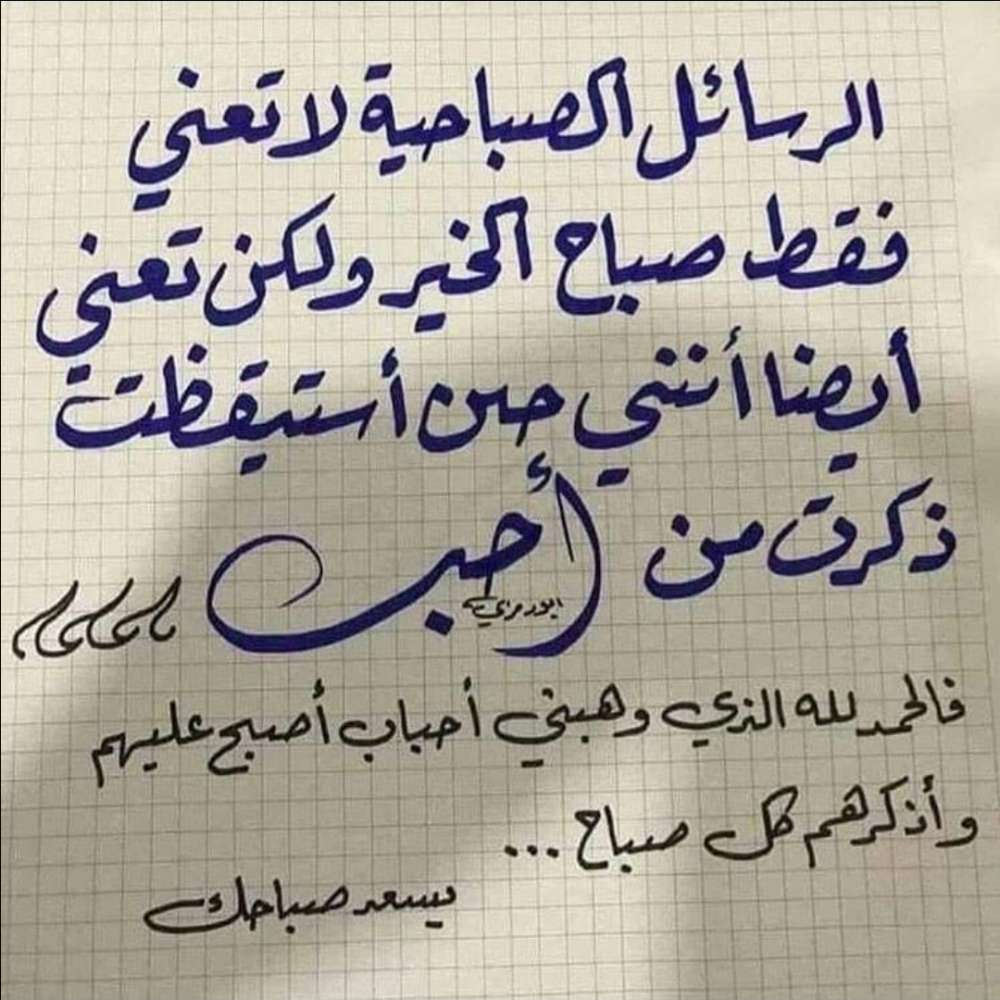 الرسائل الصباحية لا تعني
فقط صباح الخير ولكن تعني
أيضا أنني حين أستيقظت
ذكرت من أحب
فالحمد لله الذي وهبني أحباب أصبح عليهم
وأذكرهم كل صباح ...
يسعد صباحك